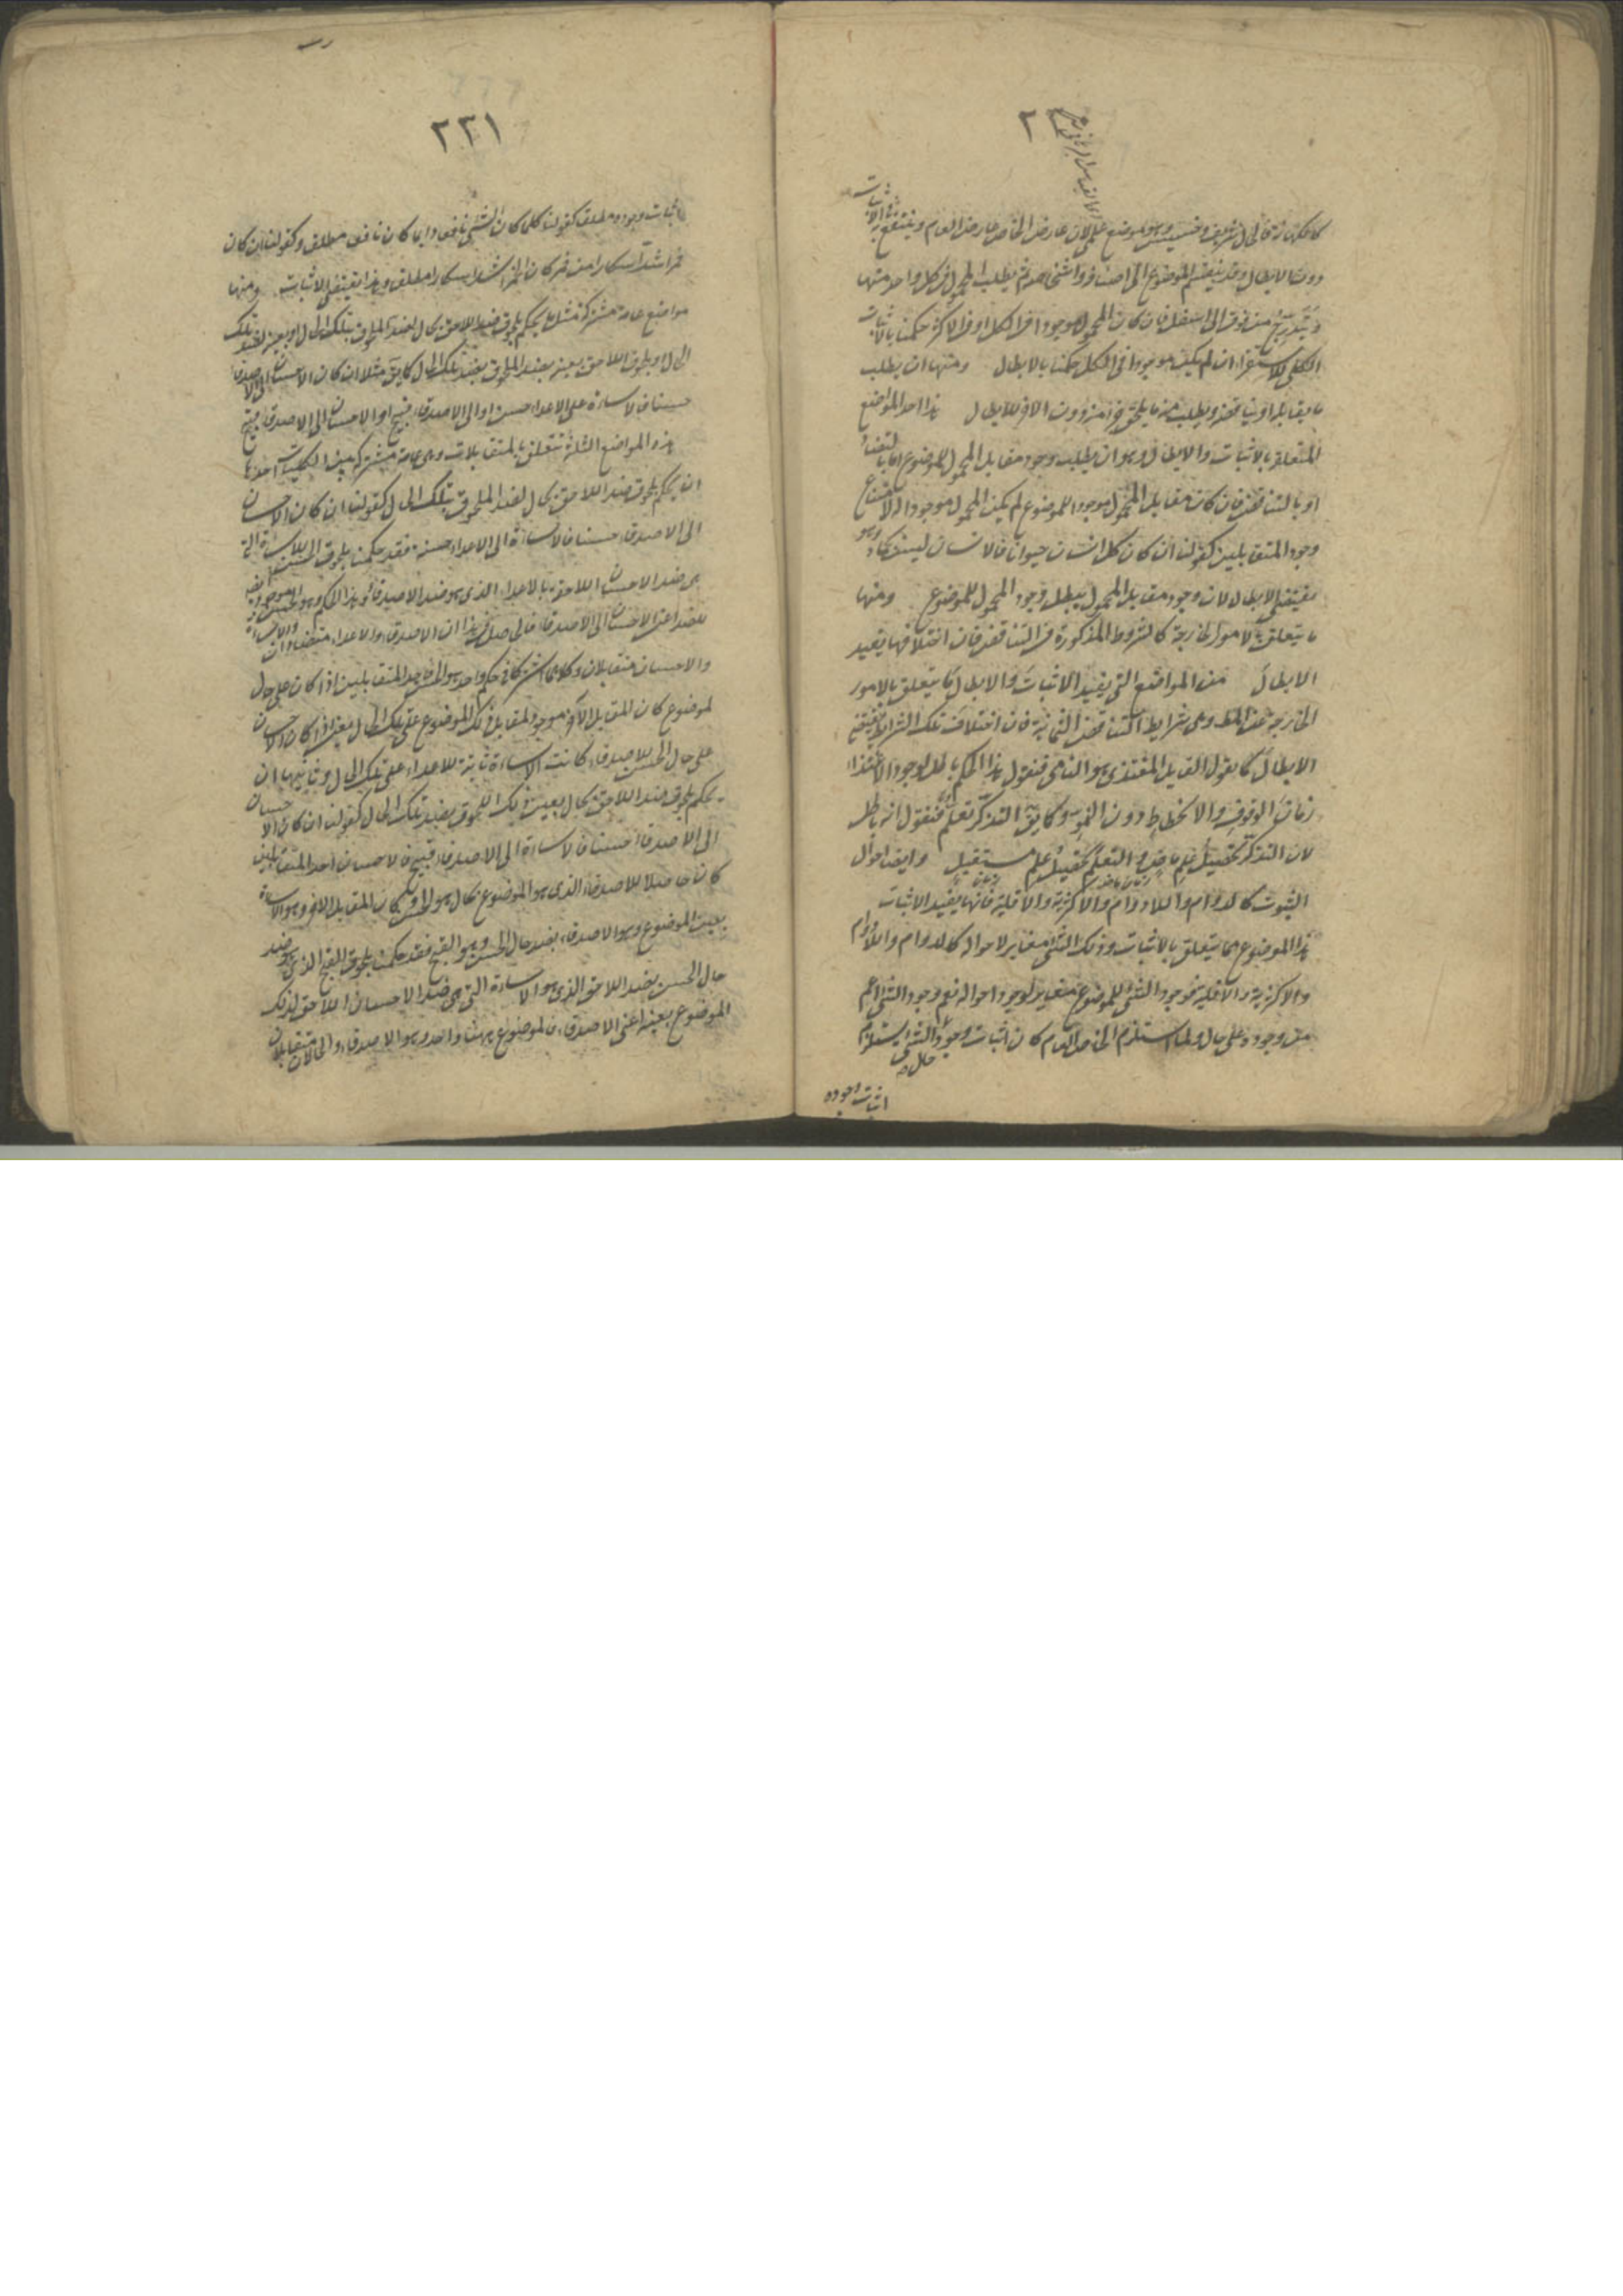 كالكهانة
دون الابطال وقد ينقسم الموضوع الى اصنافه واشخاصه ثم يطلب المحمول في كل واحد منها
ويتدرج من فوق الى اسفل فان كان المحمول موجودا في الكل او في الاكثر حكمنا بالاثبات
الكلي للاستقراء وان لم يكن موجودا في الكل حكمنا بالابطال ومنها ان يطلب
ما يقابله او يناقضه ويطلب منه ما يلحق دون الاخر للابطال هذا احد المواضع
المتعلقة بالاثبات والابطال وهو ان يطلب وجود مقابل المحمول للموضوع اما بالتضاد
او بالتناقض فان كان مقابل المحمول موجودا للموضوع لم يكن المحمول موجودا له لامتناع
وجود المتقابلين كقولنا ان كان كل انسان حيوانا فالانسان ليس بجماد وهو
يقتضي الابطال لان وجود مقابل المحمول يبطل وجود المحمول للموضوع ومنها
ما يتعلق بالامور الخارجة كالشروط المذكورة في التناقض فان اختلافها يفيد
الابطال من المواضع التي يفيد الاثبات والابطال ما يتعلق بالامور
الخارجة عن وهي شرايط التناقض الثمانية فان اختلاف تلك الشرايط يقتضي
الابطال كما يقول القايل المغتذي هو النامي فنقول هذا الحكم باطل لوجود الاغتذاء
زمان الوقوف والانحطاط دون النمو وكما يق التذكر تعلم فنقول انه باطل
لان التذكر تحصيل علم ماض والتعلم تحصيل علم مستقبل وايضا احوال
الثبوت كالدوام واللادوام والاكثرية والاقلية فانها يفيد الاثبات
هذا الموضوع مما يتعلق بالاثبات وذلك الشئ مغاير لاحواله كالدوام واللادوام
والاكثرية والاقلية فوجود الشئ للموضوع مغاير لوجود احواله نعم وجود الشئ اعم
من وجوده على حال ولما استلزم الخاص العام كان اثبات وجود الشئ يستلزم
اثبات وجوده
٢٣١
اثبات وجوده مطلقا كقولنا كلما كان الشئ نافعا دايما كان نافعا مطلقا وكقولنا ان كان
خمر اشد اسكارا من خمر كان الخمر اسكارا مطلقا وهذا يقتضي الاثبات ومنها
مواضع عامة مشتركة مثل ما يحكم بلحوق ضد اللاحق بحال لضد الملحوق بتلك الحال او بعينه لضد تلك
الحال او بلحوق اللاحق بعينه بضد الملحوق بضد تلك الحال كما يق مثلا ان كان الاحسان الى الاصدقاء
حسنا فالاساءة على الاعداء حسن او الى الاصدقاء قبيح او الاحسان الى الاصدقاء قبيح
هذه المواضع الثلثة تتعلق بالمتقابلات وهي عامة مشتركة بين احدها
ان يحكم بلحوق ضد اللاحق بحال لضد الملحوق بتلك الحال كقولنا ان كان الاحسان
الى الاصدقاء حسنا فالاساءة الى الاعداء حسنة فقد حكمنا بلحوق الحسن للاساءة التي
هي ضد الاحسان اللاحق بالاعداء الذي هو ضد الاصدقاء وهذا الحكم وهو
للضد اعني الاحسان الى الاصدقاء فالحاصل من هذا ان الاصدقاء والاعداء متضادان والاساءة
والاحسان متقابلان وكلاهما اشتركا في حكم واحد وهو الحسن واحد المتقابلين اذا كان على حال
لموضوع كان المقابل الآخر موجودا لمقابل ذلك الموضوع على تلك الحال يعني اذا كان الاحسان
على حال الحسن للاصدقاء كانت الاساءة ثابتة للاعداء على تلك الحال وثانيها ان
يحكم بلحوق ضد اللاحق بحال بعين ذلك الملحوق بضد تلك الحال كقولنا ان كان الاحسان
الى الاصدقاء حسنا فالاساءة الى الاصدقاء قبيح فالاحسان احد المتقابلين
كان حاصلا للاصدقاء الذي هو الموضوع بحال هو الحسن كان المقابل الاخر وهو الاساءة
بعين الموضوع وهو الاصدقاء بضد حال الحسن وهو القبح فقد حكمنا بلحوق القبح الذي هو ضد
حال الحسن بضد اللاحق الذي هو الاساءة التي هي ضد الاحسان اللاحق لذلك
الموضوع بعينه اعني الاصدقاء فالموضوع ههنا واحد وهو الاصدقاء والحالان متقابلان